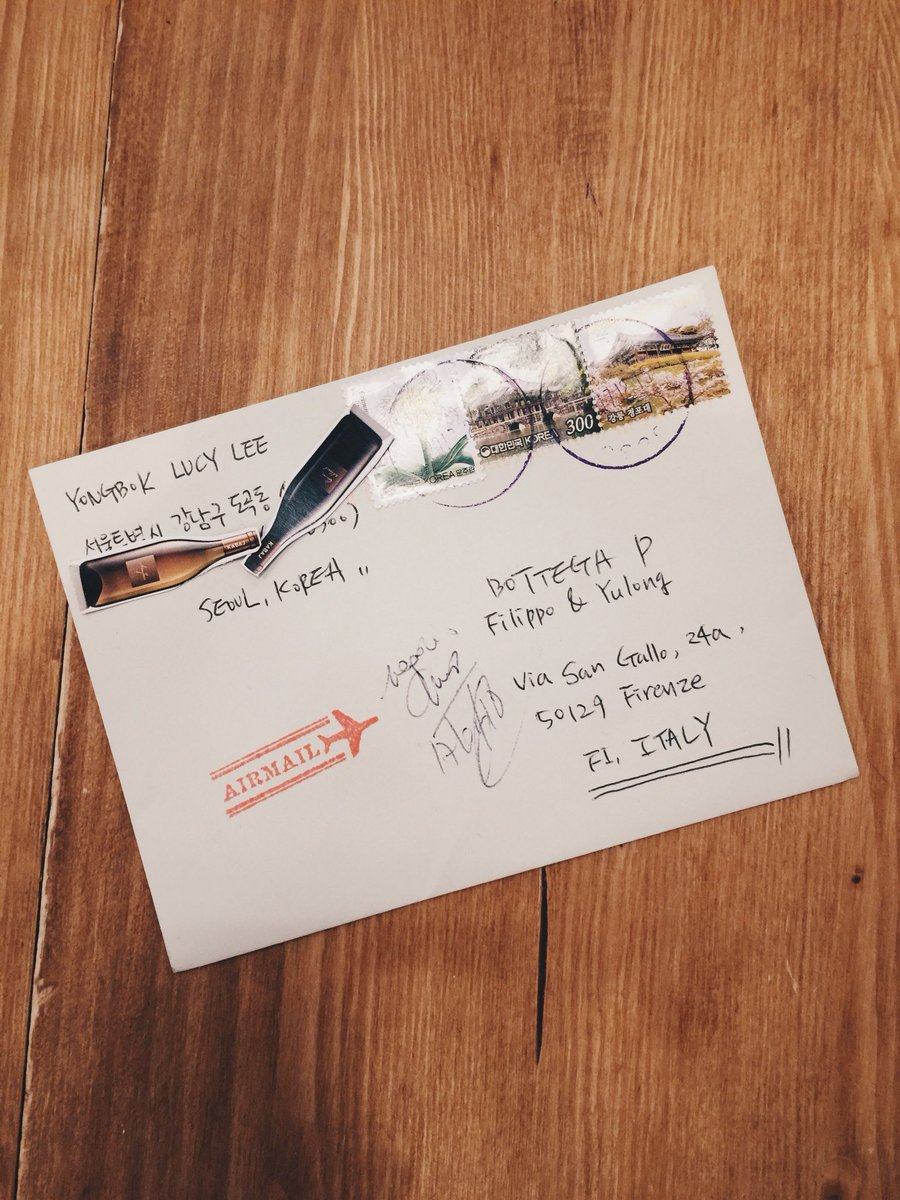 YONGBOK LUCY LEE
서울특별시 강남구 도곡동
SEOUL, KOREA
KOREA
대한민국 KOREA 300
강릉 경포대
KABAJ
KABAJ
BOTTEGA P
Filippo & Yulong
Via San Gallo, 24a,
50129 Firenze
FI, ITALY
AIRMAIL